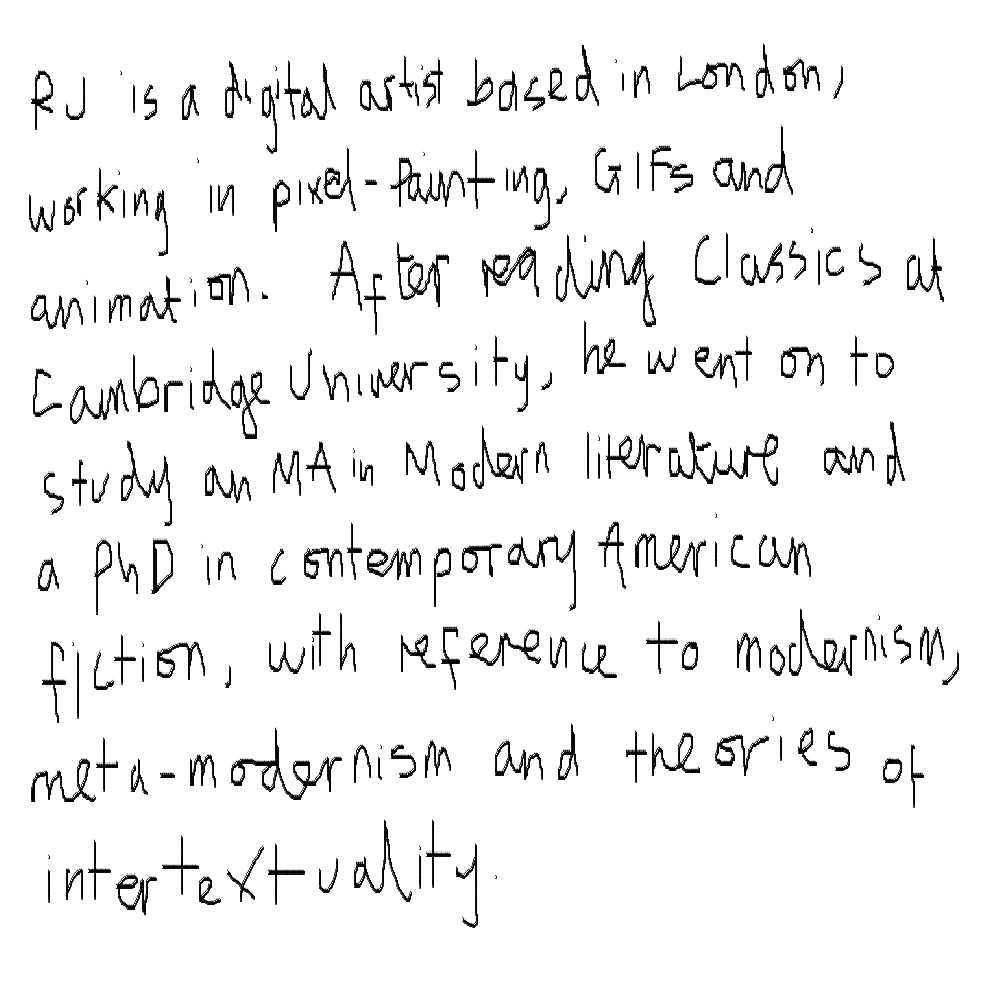 RJ is a digital artist based in London,
working in pixel-painting, GIFs and
animation. After reading Classics at
Cambridge University, he went on to
study an MA in Modern literature and
a PhD in contemporary American
fiction, with reference to modernism,
meta-modernism and theories of
intertextuality.